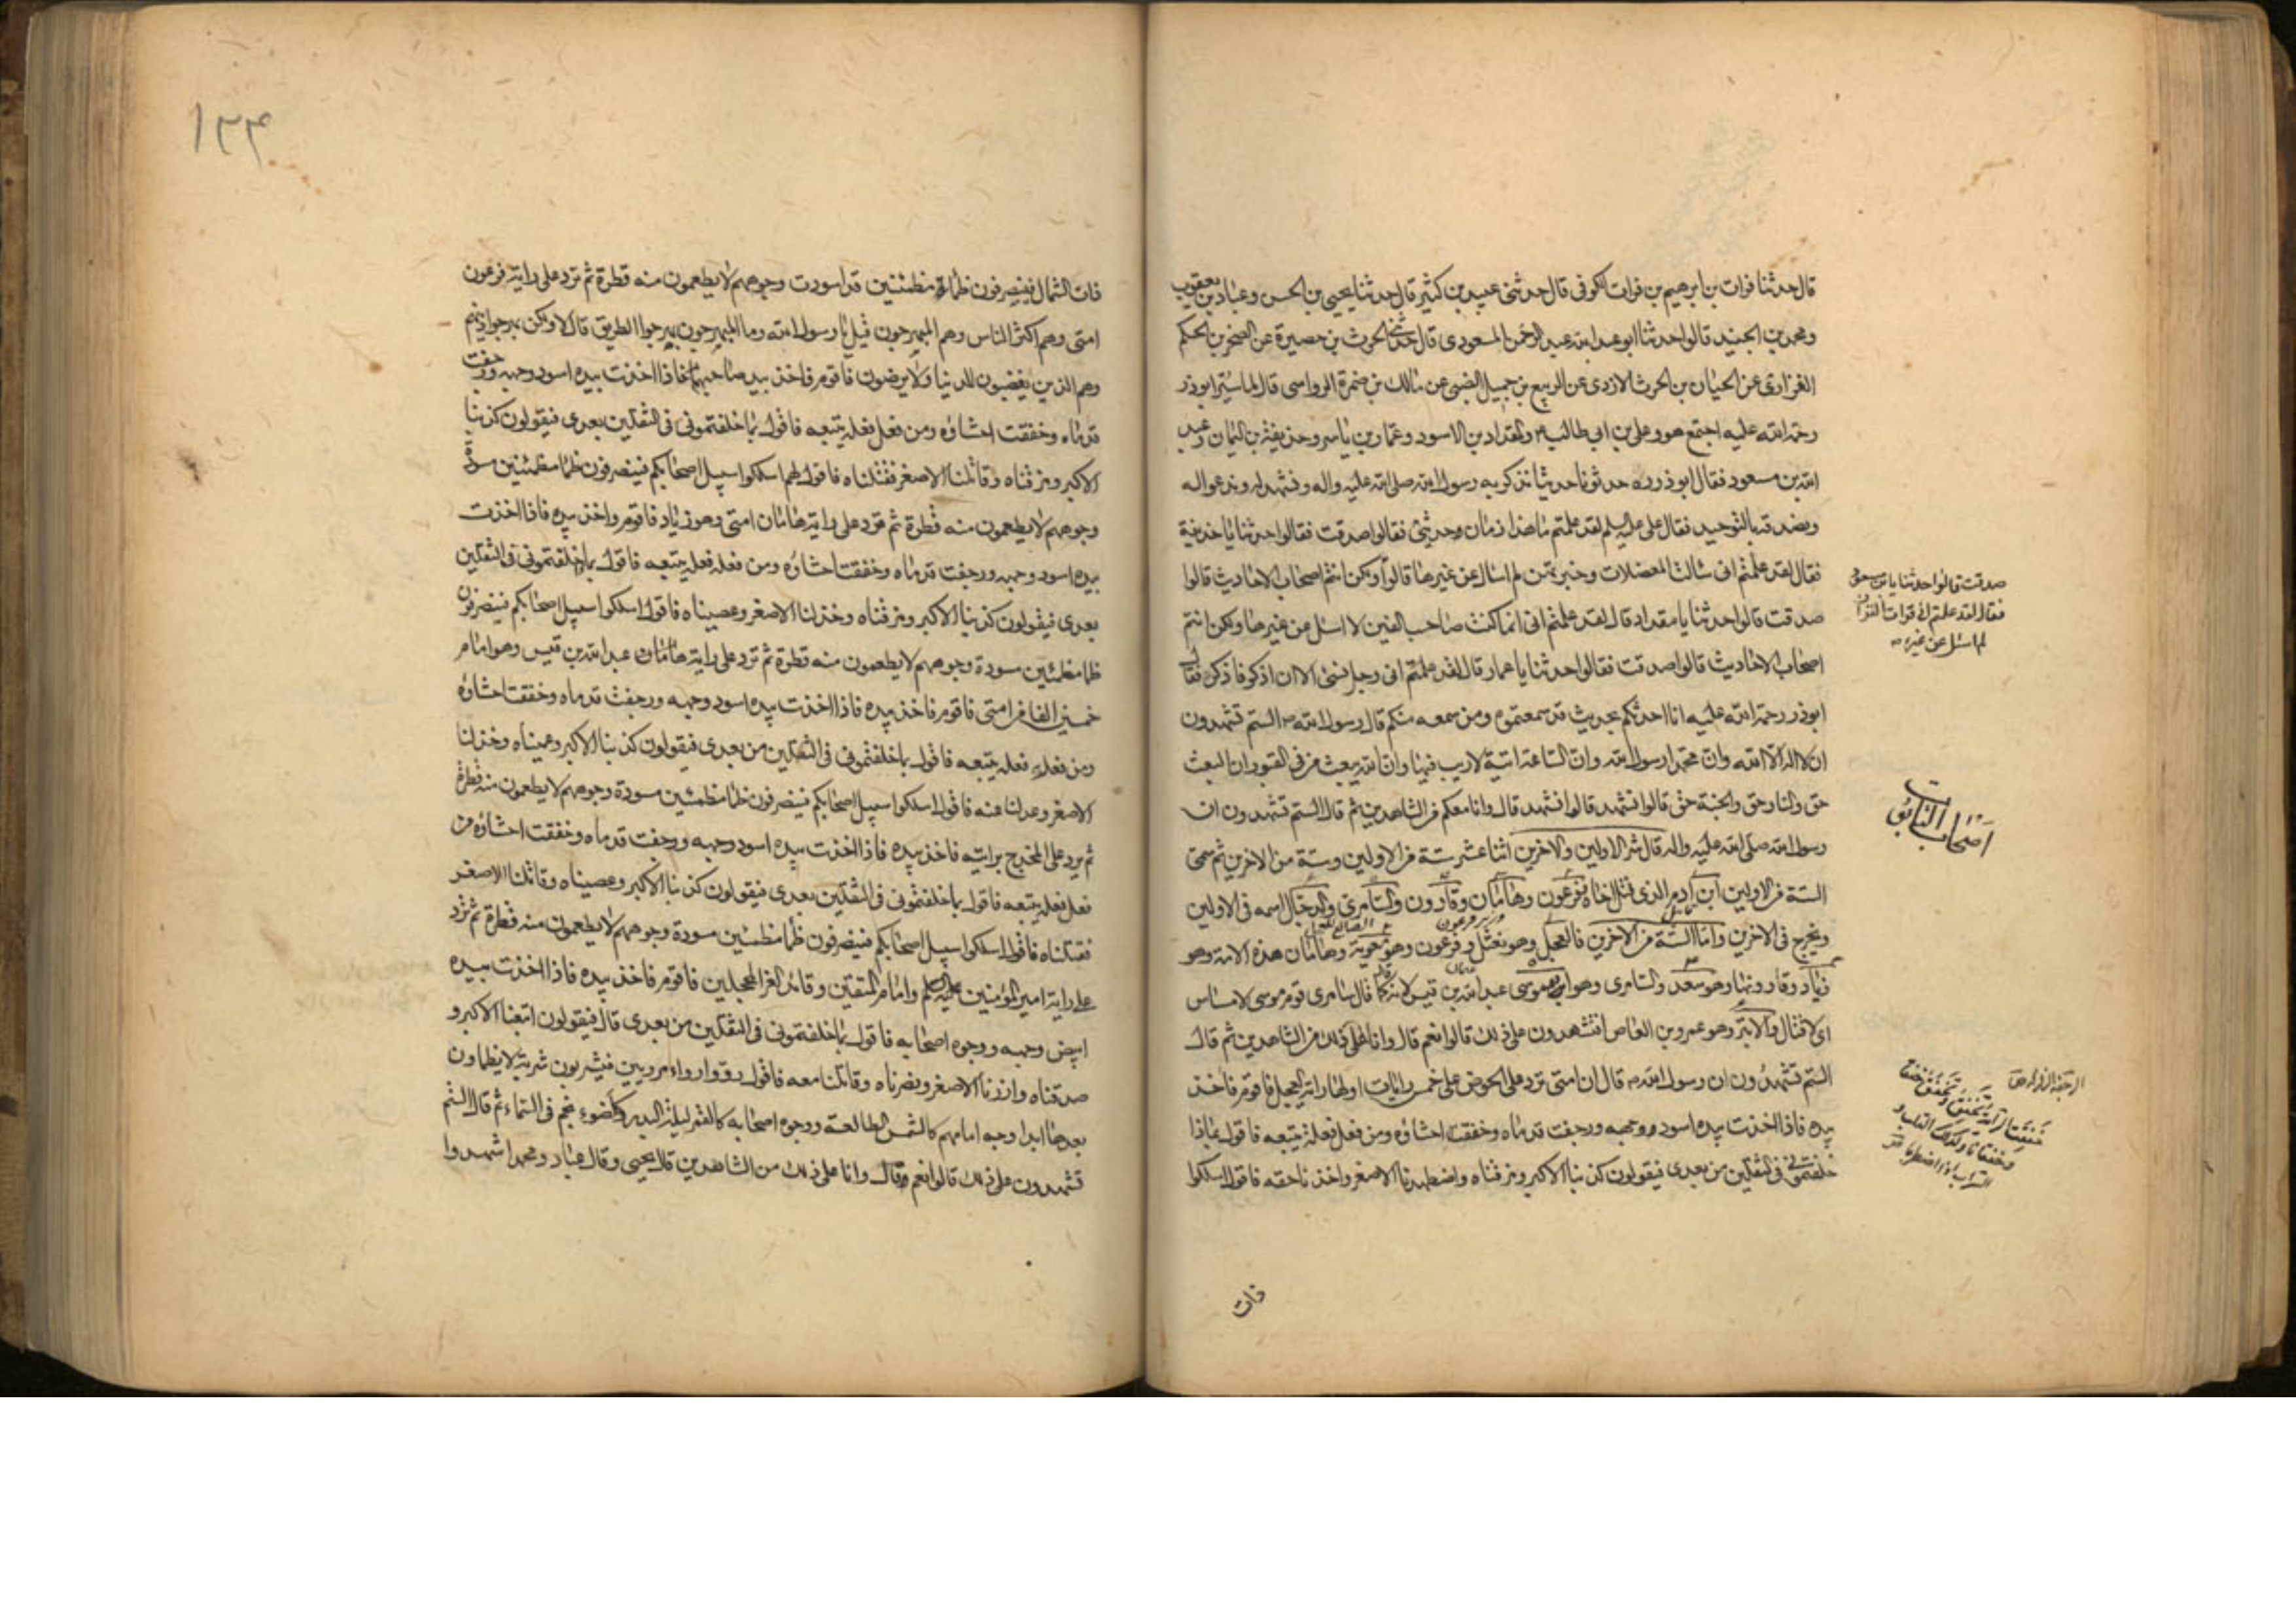 قال حدثنا فرات بن ابرهيم بن فرات الكوفى قال حدثنى عبيد بن كثير قال حدثنا يحيى بن الحسن وعباد بن يعقوب
ومحمد بن الجنيد قالوا حدثنا ابو عبد الله عبد الرحمن المسعودى قال حدثنى الحرث بن حصيرة عن الصخر بن الحكم
الفزارى عن الحيان بن الحرث الازدى عن الربيع بن جميل الضبى عن مالك بن ضمرة الرواسى قال لما سير ابوذر
رحمة الله عليه اجتمع هو وعلى بن ابى طالب والمقداد بن الاسود وعمار بن ياسر وحذيفة بن اليمان وعبد
الله بن مسعود فقال ابوذر ره حدثونا حديثا نذكر به رسول الله صلى الله عليه واله ونشهد له وندعو اله
ونصدقه بالتوحيد فقال على عليه السلم لقد علمتم ما هذا زمان حديثى فقالوا صدقت فقالوا حدثنا يا حذيفة
فقال لقد علمتم انى سالت المعضلات وخبرتهن لم اسال عن غيرها قالوا ولكن انتم اصحاب الاحاديث قالوا
صدقت قالوا حدثنا يا مقداد قال لقد علمتم انى انما كنت صاحب الفتن لا اسئل عن غيرها ولكن انتم
اصحاب الاحاديث قالوا صدقت فقالوا حدثنا يا عمار قال لقد علمتم انى رجل نسى الا ان اذكر فاذكر فقال
ابوذر رحمة الله عليه انا احدثكم بحديث قد سمعتموه ومن سمعه منكم قال رسول الله ص الستم تشهدون
ان لا اله الا الله وان محمدا رسول الله وان الساعة اتية لا ريب فيها وان الله يبعث من فى القبور ان البعث
حق والنار حق والجنة حق قالوا نشهد قالوا نشهد قال وانا معكم من الشاهدين ثم قال الستم تشهدون ان
رسول الله صلى الله عليه واله قال شر الاولين والاخرين اثنا عشر ستة من الاولين وستة من الاخرين ثم سمى
الستة من الاولين ابن ادم الذى قتل اخاه وفرعون وهامان وقارون والسامرى والدجال اسمه فى الاولين
ويخرج فى الاخرين واما الستة من الاخرين فالعجل وهو نعثل وفرعون وهو معوية وهامان هذه الامة وهو
زياد وقارونها وهو سعد والسامرى وهو ابو موسى عبد الله بن قيس لانه قال كما قال سامرى قوم موسى لا مساس
اى لا قتال والابتر وهو عمرو بن العاص افتشهدون على ذلك قالوا نعم قال وانا على ذلك من الشاهدين ثم قال
الستم تشهدون ان رسول الله ص قال ان امتى ترد على الحوض على خمس رايات اولها راية العجل فاقوم فاخذ
بيده فاذا اخذت بيده اسود وجهه ورجفت قدماه وخفقت احشاؤه ومن فعل فعله يتبعه فاقول بماذا
خلفتمونى فى الثقلين من بعدى فيقولون كذبنا الاكبر ومزقناه واضطهدنا الاصغر واخذنا حقه فاقول اسلكوا
فات
صدقت قالوا حدثنا يا بن مسعود
فقال لقد علمتم انى قرات القران
لم اسئل عن غيره
اصحاب التابوت
ذات الشمال فينصرفون ظماء مظمئين قد اسودت وجوههم لا يطعمون منه قطرة ثم ترد على راية فرعون
امتى وهم اكثر الناس وهم المبهرجون قيل يا رسول الله وما المبهرجون بهرجوا الطريق قال لا ولكن بهرجوا دينهم
وهم الذين يغضبون للدنيا ولا يرضون فاقوم فاخذ بيد صاحبهم فاذا اخذت بيده اسود وجهه ورجفت
قدماه وخفقت احشاؤه ومن فعل فعله يتبعه فاقول بما خلفتمونى فى الثقلين بعدى فيقولون كذبنا
الاكبر ومزقناه وقاتلنا الاصغر فقتلناه فاقول لهم اسلكوا سبيل اصحابكم فينصرفون ظما مظمئين مسودة
وجوههم لا يطعمون منه قطرة ثم ترد على راية هامان امتى وهو زياد فاقوم واخذ بيده فاذا اخذت
بيده اسود وجهه ورجفت قدماه وخفقت احشاؤه ومن فعله فعله يتبعه فاقول بما خلفتمونى فى الثقلين
بعدى فيقولون كذبنا الاكبر ومزقناه وخذلنا الاصغر وعصيناه فاقول اسلكوا سبيل اصحابكم فينصرفون
ظما مظمئين مسودة وجوههم لا يطعمون منه قطرة ثم ترد على راية هامان عبد الله بن قيس وهو امام
خمسين الفا من امتى فاقوم فاخذ بيده فاذا اخذت بيده اسود وجهه ورجفت قدماه وخفقت احشاؤه
ومن فعل فعله يتبعه فاقول بما خلفتمونى فى الثقلين من بعدى فيقولون كذبنا الاكبر وعصيناه وخذلنا
الاصغر وعدلنا عنه فاقول اسلكوا سبيل اصحابكم فينصرفون ظما مظمئين مسودة وجوههم لا يطعمون منه قطرة
ثم يرد على المخدج برايته فاخذ بيده فاذا اخذت بيده اسود وجهه ورجفت قدماه وخفقت احشاؤه من
فعل فعله يتبعه فاقول بما خلفتمونى فى الثقلين بعدى فيقولون كذبنا الاكبر وعصيناه وقاتلنا الاصغر
فقتلناه فاقول اسلكوا سبيل اصحابكم فينصرفون ظما مظمئين مسودة وجوههم لا يطعمون منه قطرة ثم ترد
على راية امير المؤمنين عليه السلم وامام المتقين وقائد الغر المحجلين فاقوم فاخذ بيده فاذا اخذت بيده
ابيض وجهه ووجوه اصحابه فاقول بما خلفتمونى فى الثقلين من بعدى قال فيقولون اتبعنا الاكبر و
صدقناه وازرنا الاصغر ونصرناه وقاتلنا معه فاقول رووا رواء مرويين فيشربون شربة لا يظماون
بعدها ابدا وجه امامهم كالشمس الطالعة ووجوه اصحابه كالقمر ليلة البدر وكاضوء نجم فى السماء ثم قال الستم
تشهدون على ذلك قالوا نعم وقال وانا على ذلك من الشاهدين قال يحيى وقال عباد ومحمد اشهدوا
١٣٤